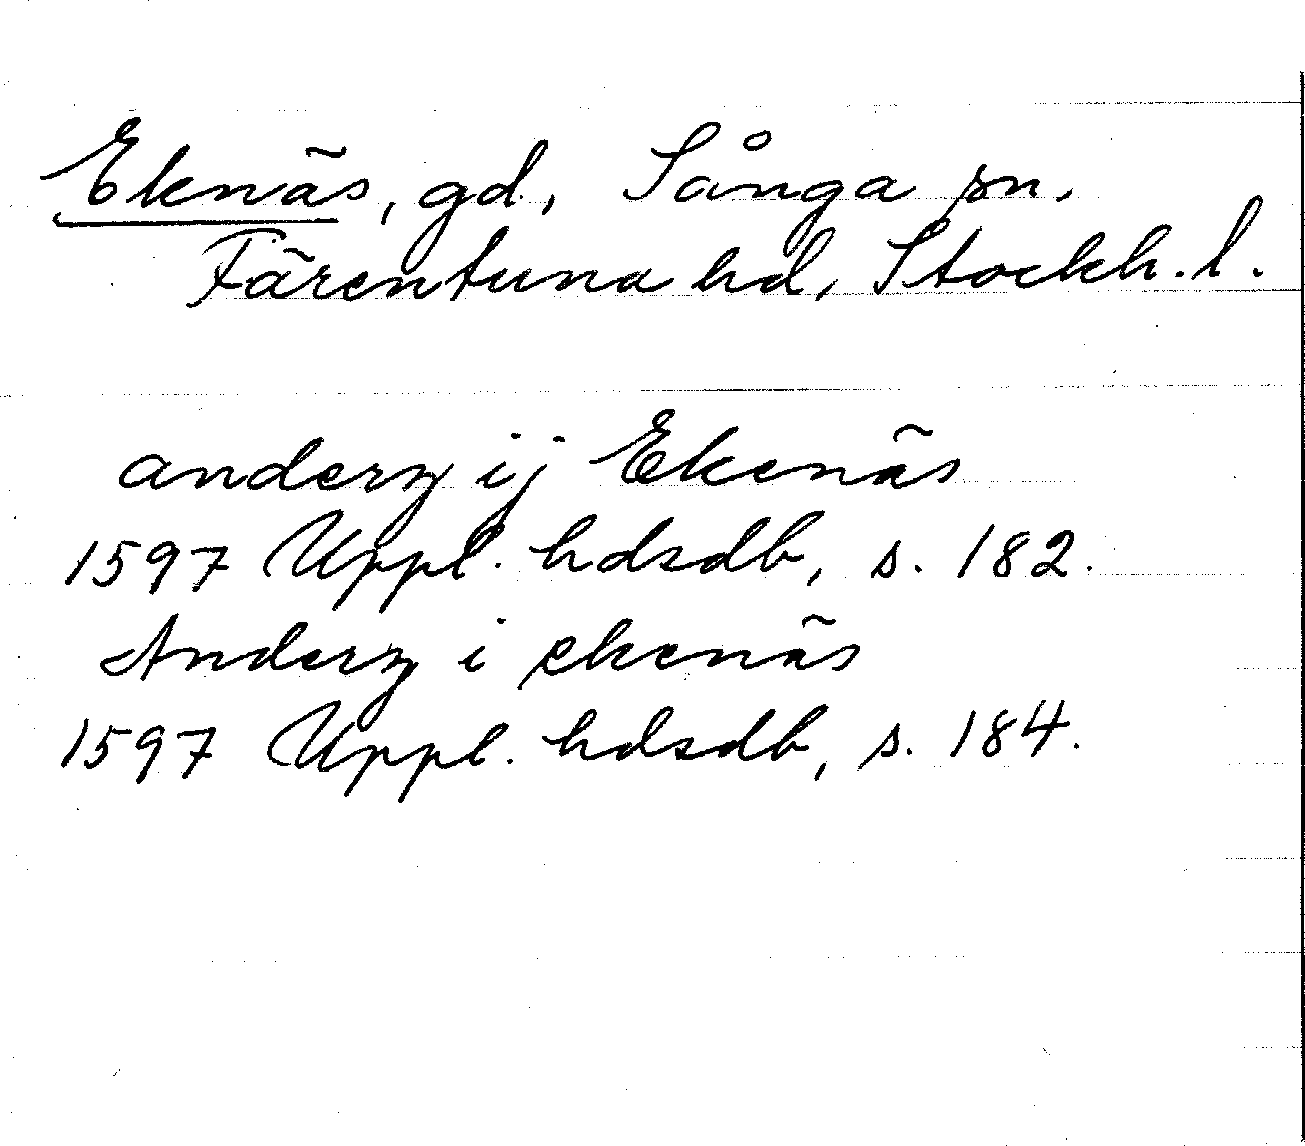 Eknäs, gd, Sånga sn.
Färentuna hd, Stockh. l.
anderz ij Ekenäs
1597 Uppl. hdsdb, s. 182.
Anderz i ekenäs
1597 Uppl. hdsdb, s. 184.